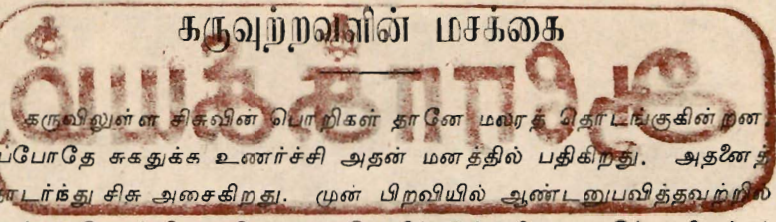 கருவுற்றவளின் மசக்கை
கருவிலுள்ள சிசுவின் பொறிகள் தானே மலரத் தொடங்குகின்றன
ப்போதே சுகதுக்க உணர்ச்சி அதன் மனத்தில் பதிகிறது. அதனைத்
டர்ந்து சிசு அசைகிறது. முன் பிறவியில் ஆண்டனுபவித்தவற்றில்